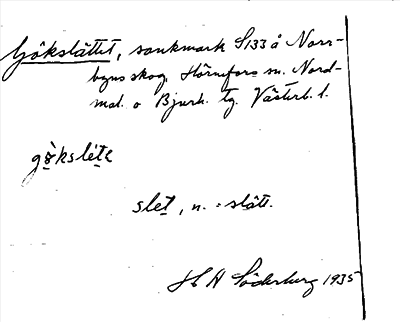 Gökslåttet, sankmark S133 å Norr-
byns skog, Hörnefors sn. Nord-
mal. o Bjurh. tg. Västerb. l.
gö̀kslétẹ
slet, n. = slått.
H A Söderberg 1935